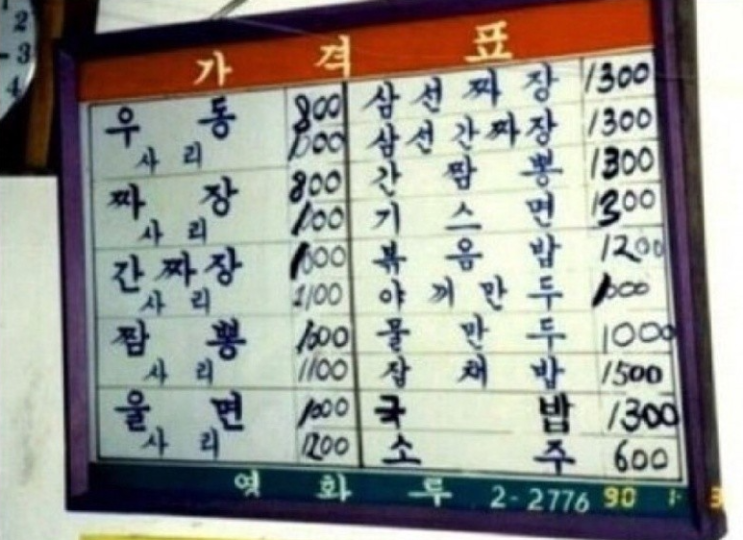 2
3
4
가격표
우동 800
사리 1000
짜장 800
사리 1000
간짜장 1000
사리 1100
짬뽕 1000
사리 1100
울면 1000
사리 1200
삼선짜장 1300
삼선간짜장 1300
간짬뽕 1300
기스면 1300
볶음밥 1200
야끼만두 1000
물만두 1000
잡채밥 1500
국밥 1300
소주 600
영화루 2-2776
90 1 3